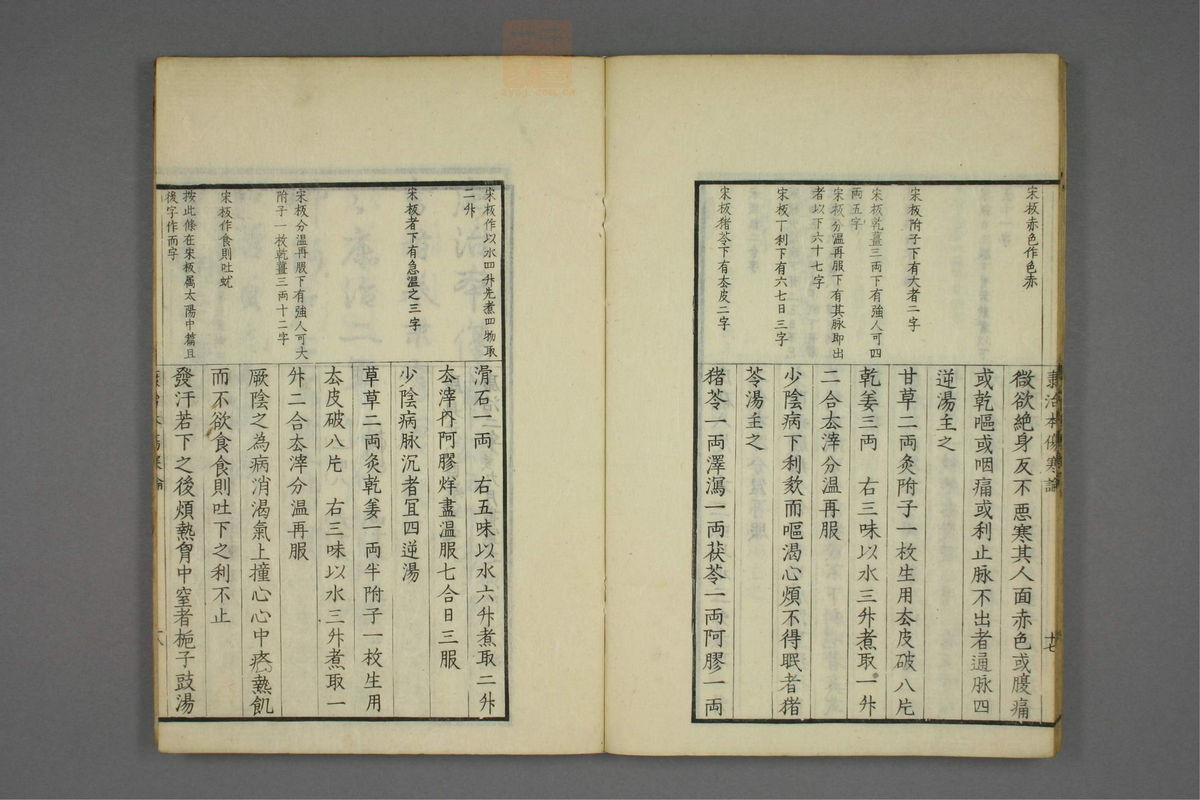 康治本傷寒論
十七
宋板赤色作色赤
宋板附子下有大者二字
宋板乾薑三両下有強人可四
両五字
宋板分温再服下有其脉即出
者以下六十七字
宋板丁利下有六七日三字
宋板猪苓下有厺皮二字
微欲絶身反不悪寒其人面赤色或腹痛
或乾嘔或咽痛或利止脉不出者通脉四
逆湯主之
甘草二両灸附子一枚生用厺皮破八片
乾姜三両　右三味以水三升煮取一升
二合厺滓分温再服
少陰病下利欬而嘔渴心煩不得眠者猪
苓湯主之
猪苓一両澤瀉一両茯苓一両阿膠一両
宋板作以水四升先煮四物取
二升
宋板者下有急温之三字
宋板分温再服下有強人可大
附子一枚乾薑三両十二字
宋板作食則吐蚘
按此條在宋板属太陽中篇且
後字作而字
滑石一両　右五味以水六升煮取二升
厺滓內阿膠烊盡温服七合日三服
少陰病脉沉者冝四逆湯
草草二両灸乾姜一両半附子一枚生用
厺皮破八片　右三味以水三升煮取一
升二合厺滓分温再服
厥陰之為病消渴氣上撞心心中疼熱飢
而不欲食食則吐下之利不止
發汗若下之後煩熱胷中窒者梔子豉湯